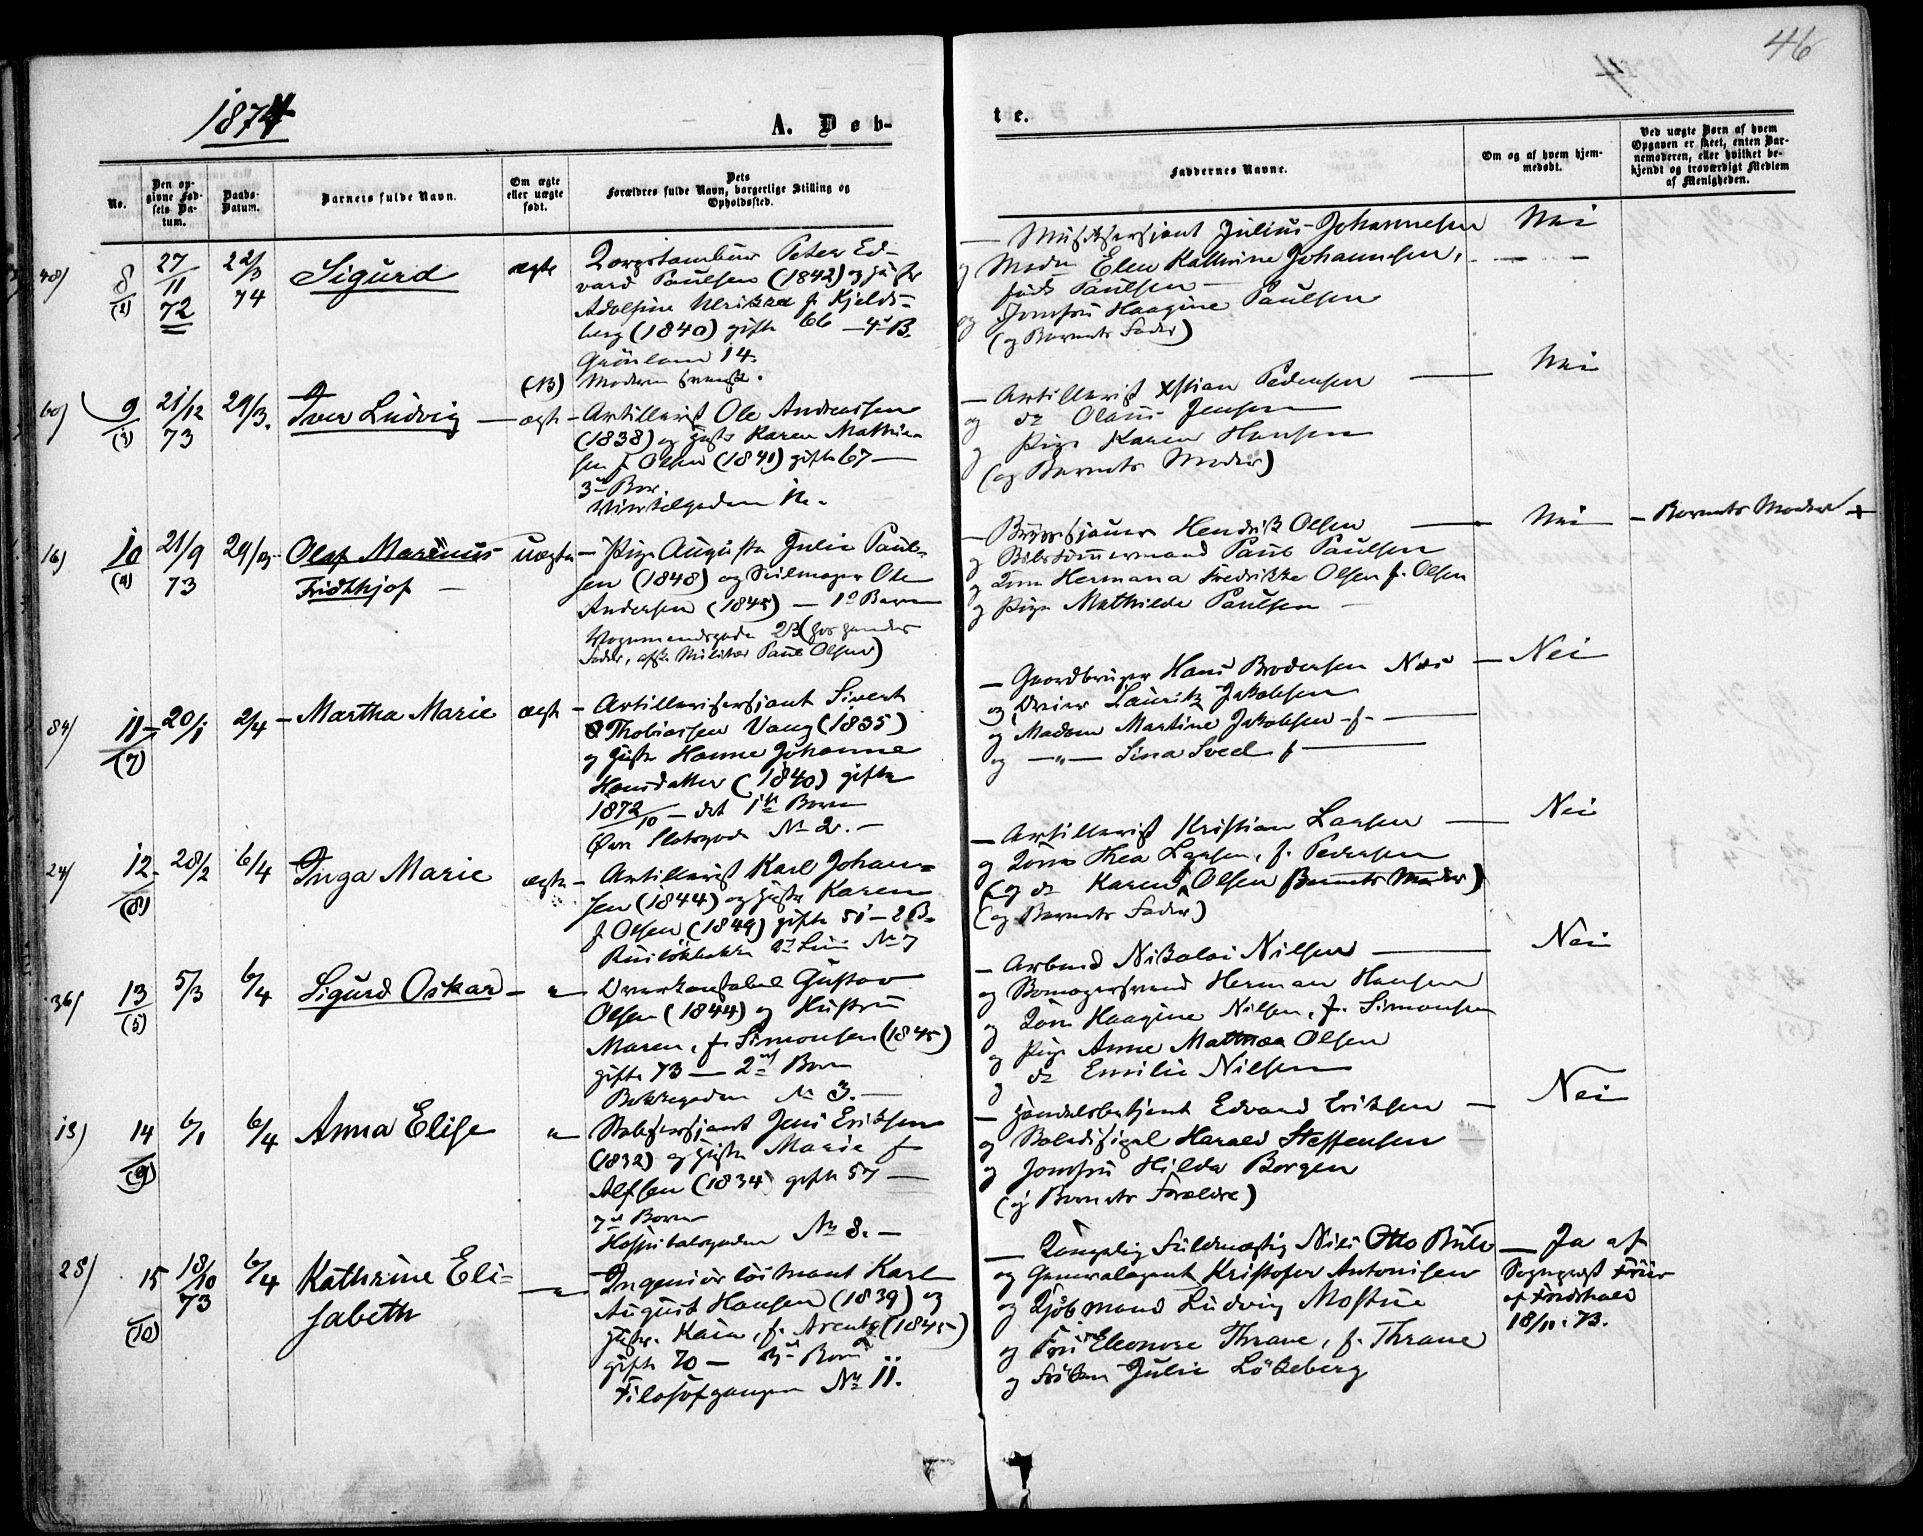 46
1874
A. Døb-
te.
No.
Den op-
givne Fød-
sels Da-
tum.
Daabs-
Datum.
Barnets fulde Navn.
Om ægte
eller uægte
født.
Dets
Forældres fulde Navn, borgerlige Stilling og
Opholdssted.
Faddernes Navne.
Om og af hvem hjem-
medøbt.
Ved uægte Børn af hvem
Opgaven er skeet, enten Bar-
nemoderen, eller hvilket be-
kjendt og troværdigt Medlem
af Menigheden.
48) 8 27/11 72 22/3 74 Sigurd ægte
Peter Ed-
vard Paulsen (1842) og
Adolfine Ulrikka f. Kjelds-
berg (1840) gifte 66 — 4de B.
Grönland 14.
Moderen svensk.
— Musiksersjant Julius Johannesen Nei
og Madm Elen Kathrine Johannesen,
föds Paulsen —
og Jomfru Haagine Paulsen
(og Barnets Fader)
60) 9 (3) 21/12 73 29/3. Iver Ludvig — ægte
— Artillerist Ole Andreassen
(1838) og Karen Mathie-
sen f. Olsen (1840) gifte 67 —
3de Barn
— Artillerist Xstian Pedersen — Nei
og do Olaus Jensen
og Pige Karen Hansen
(og Barnets Moder)
16) 10 (4) 21/9 73 29/3 Olaf Marinus
Fridthjof —
Uægte — Pige Augusta Julie Paul-
sen (1848) og Seilmager Ole
Andersen (1845) — 1e Barn
Vognmandsgade 23 (hos hendes
Fader, afsk. Militær Paul Olsen)
— Bryggesjauer Hendrik Olsen — Nei — Barnets Moder +
og Paul Paulsen
og Kone Hermana Fredrikke Olsen f. Olsen
og Pige Mathilde Paulsen —
84) 11 (7) 20/1 2/4 — Martha Marie ægte
— Artillerisersjant Sivert
Thobiassen Vang (1835)
og Hustr Hanne Johanne
Hansdatter (1840) gifte
1872/10 — det 1ste Barn
Øvre Slotsgade No 2. —
— Gaardbruger Hans Brodersen Næs — Nei
og Dreier Lauritz Jakobsen
og Madam Martine Jakobsen — f. —
og —"— Lina Sved f —
24) 12 (8) 28/2 6/4 Inga Marie ægte
— Artillerist Karl Johan-
sen (1844) og Hustr Karen
f Olsen (1849) gifte 51 — 2 B.
No 7
— Artillerist Kristian Larsen — Nei
og Kone Thea Larsen, f. Pedersen
(og do Karen Olsen Barnets Moder)
(og Barnets Fader)
36) 13 (5) 5/3 6/4 Sigurd Oskar — "
Overkonstabel Gustav
Olsen (1844) og Hustru
Maren, f. Simonsen (1845)
gifte 73 — 2det Barn
Bakkegaden No 3. —
— Arbmd Nikolai Nilsen — Nei
og Herman Hansen
og Kone Haagine Nilsen, f. Simonsen
og Pige Anne Mathea Olsen
og do Emilie Nilsen
13) 14 (9) 6/1 6/4 Anna Elise "
Stabssersjant Jens Eriksen
(1832) og Hustr Marie f
Alfsen (1834) gifte 57 —
7de Barn
Hospitalsgaden No 8. —
— Handelsbetjent Edvard Eriksen — Nei
og Harald Steffensen
og Jomfru Hilda Borgen
(og Barnets Forældre)
28) 15 (10) 18/10 73 6/4 Kathrine Eli-
sabeth
—"— Ingeniörlöitnant Karl
August Hansen (1839) og
Hustr. Kaia, f. Arentz (1845)
gifte 70 — Barn
Filosofgangen No 11.
— Kongelig Fuldmægtig Nils Otto Bull — Ja af
og Generalagent Kristofer Antonisen
og Kjöbmand Ludvig Mostue
og Fru Eleonore Thrane, f. Thrane
og Fröken Julie Lökeberg
Sogneprest
af Fredrhald
18/11. 73.